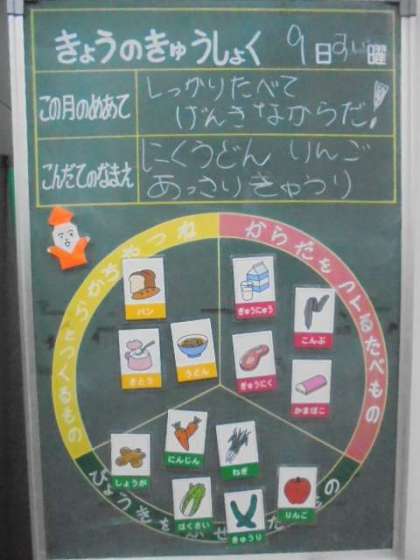 きょうのきゅうしょく 9日すい曜
この月のめあて
しっかりたべて
げんきなからだ!
こんだてのなまえ
にくうどん りんご
あっさりきゅうり
ねつやちからをつくるもの
からだをつくるたべもの
パン
ぎゅうにゅう
こんぶ
さとう
うどん
ぎゅうにく
かまぼこ
にんじん
ねぎ
しょうが
はくさい
きゅうり
りんご
びょうきを